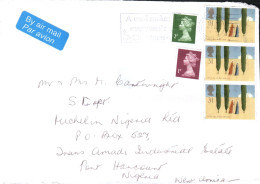 By air mail
Par avion
Mr & Mrs M. Cartwright
S Dept
Michelin Nigeria Ltd
P.O. Box
Trans Amadi Industrial Estate
Port Harcourt
Nigeria
West Africa